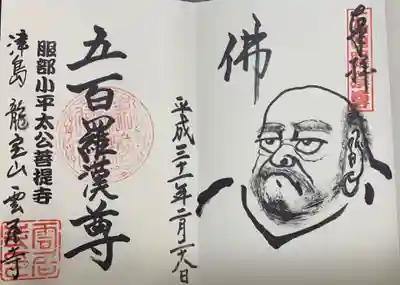 奉拝
佛
平成三十一年二月二六日
五百羅漢尊
服部小平太公菩提寺
津島 龍宝山 雲居寺